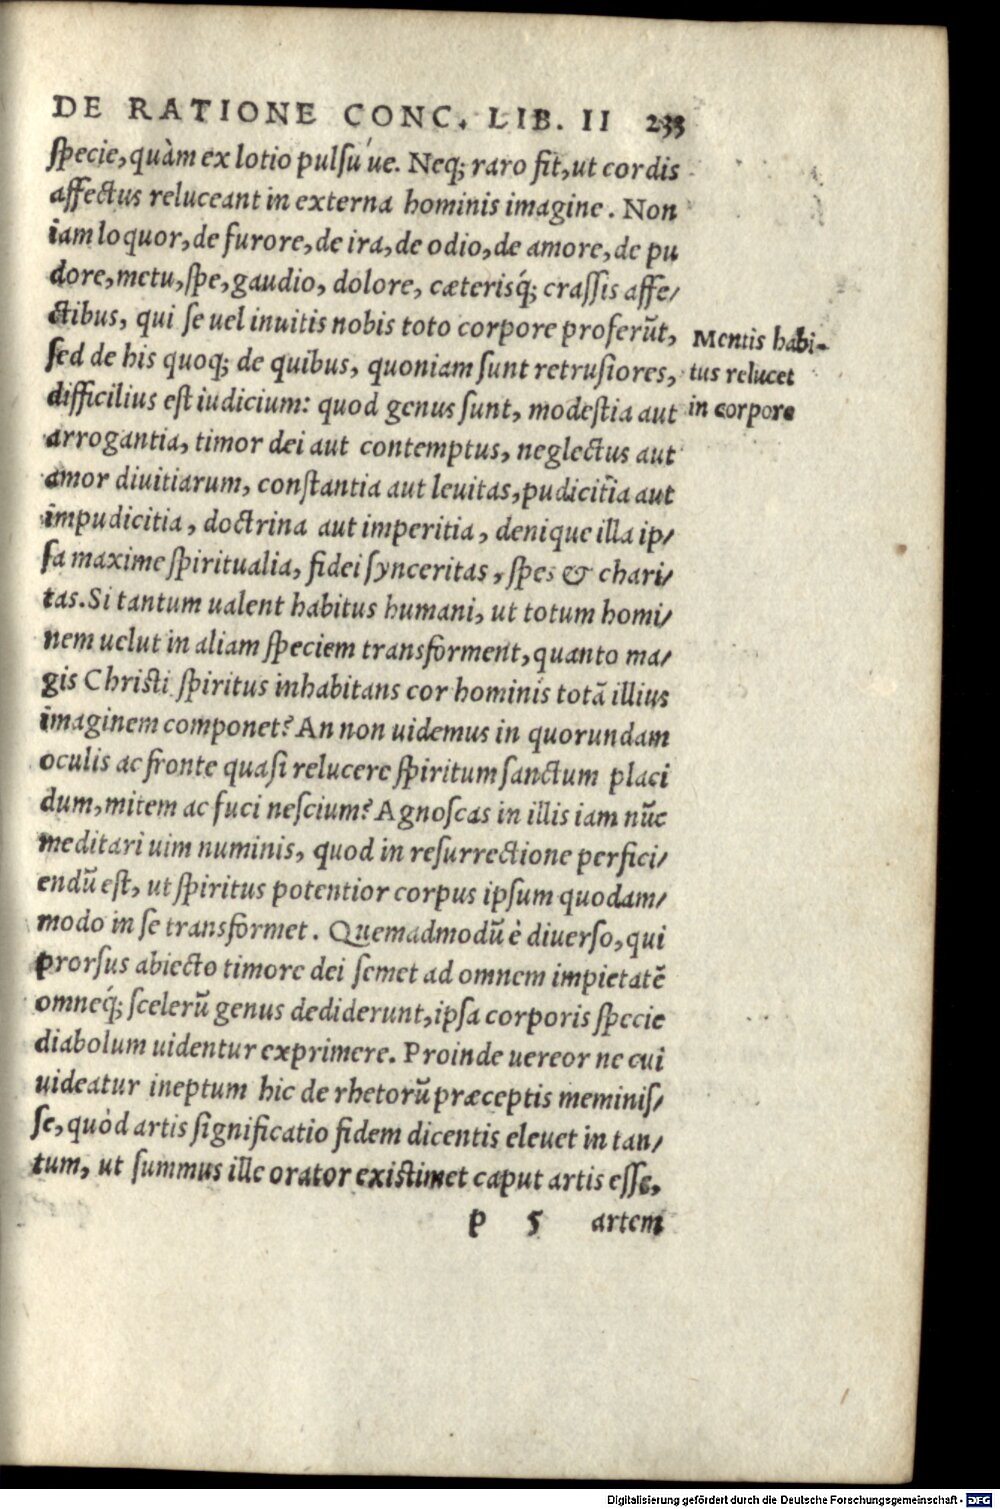 DE RATIONE CONC. LIB. II 233
specie, quàm ex lotio pulsu'ue. Neq; raro fit, ut cordis
affectus reluceant in externa hominis imagine. Non
iam loquor, de furore, de ira, de odio, de amore, de pu
dore, metu, spe, gaudio, dolore, cæterisq́; crassis affe/
ctibus, qui se uel inuitis nobis toto corpore proferũt,
sed de his quoq; de quibus, quoniam sunt retrusiores,
difficilius est iudicium: quod genus sunt, modestia aut
arrogantia, timor dei aut contemptus, neglectus aut
amor diuitiarum, constantia aut leuitas, pudicitia aut
impudicitia, doctrina aut imperitia, denique illa ip/
sa maxime spiritualia, fidei synceritas, spes & chari/
tas. Si tantum ualent habitus humani, ut totum homi/
nem uelut in aliam speciem transforment, quanto ma/
gis Christi spiritus inhabitans cor hominis totã illius
imaginem componet? An non uidemus in quorundam
oculis ac fronte quasi relucere spiritum sanctum placi
dum, mitem ac fuci nescium? Agnoscas in illis iam nũc
meditari uim numinis, quod in resurrectione perfici/
endũ est, ut spiritus potentior corpus ipsum quodam/
modo in se transformet. Quemadmodũ è diuerso, qui
prorsus abiecto timore dei semet ad omnem impietatẽ
omneq́; scelerũ genus dediderunt, ipsa corporis specie
diabolum uidentur exprimere. Proinde uereor ne cui
uideatur ineptum hic de rhetorũ præceptis meminis/
se, quòd artis significatio fidem dicentis eleuet in tan/
tum, ut summus ille orator existimet caput artis esse,
p 5 artem
Mentis habi-
tus relucet
in corpore
Digitalisierung gefördert durch die Deutsche Forschungsgemeinschaft - DFG